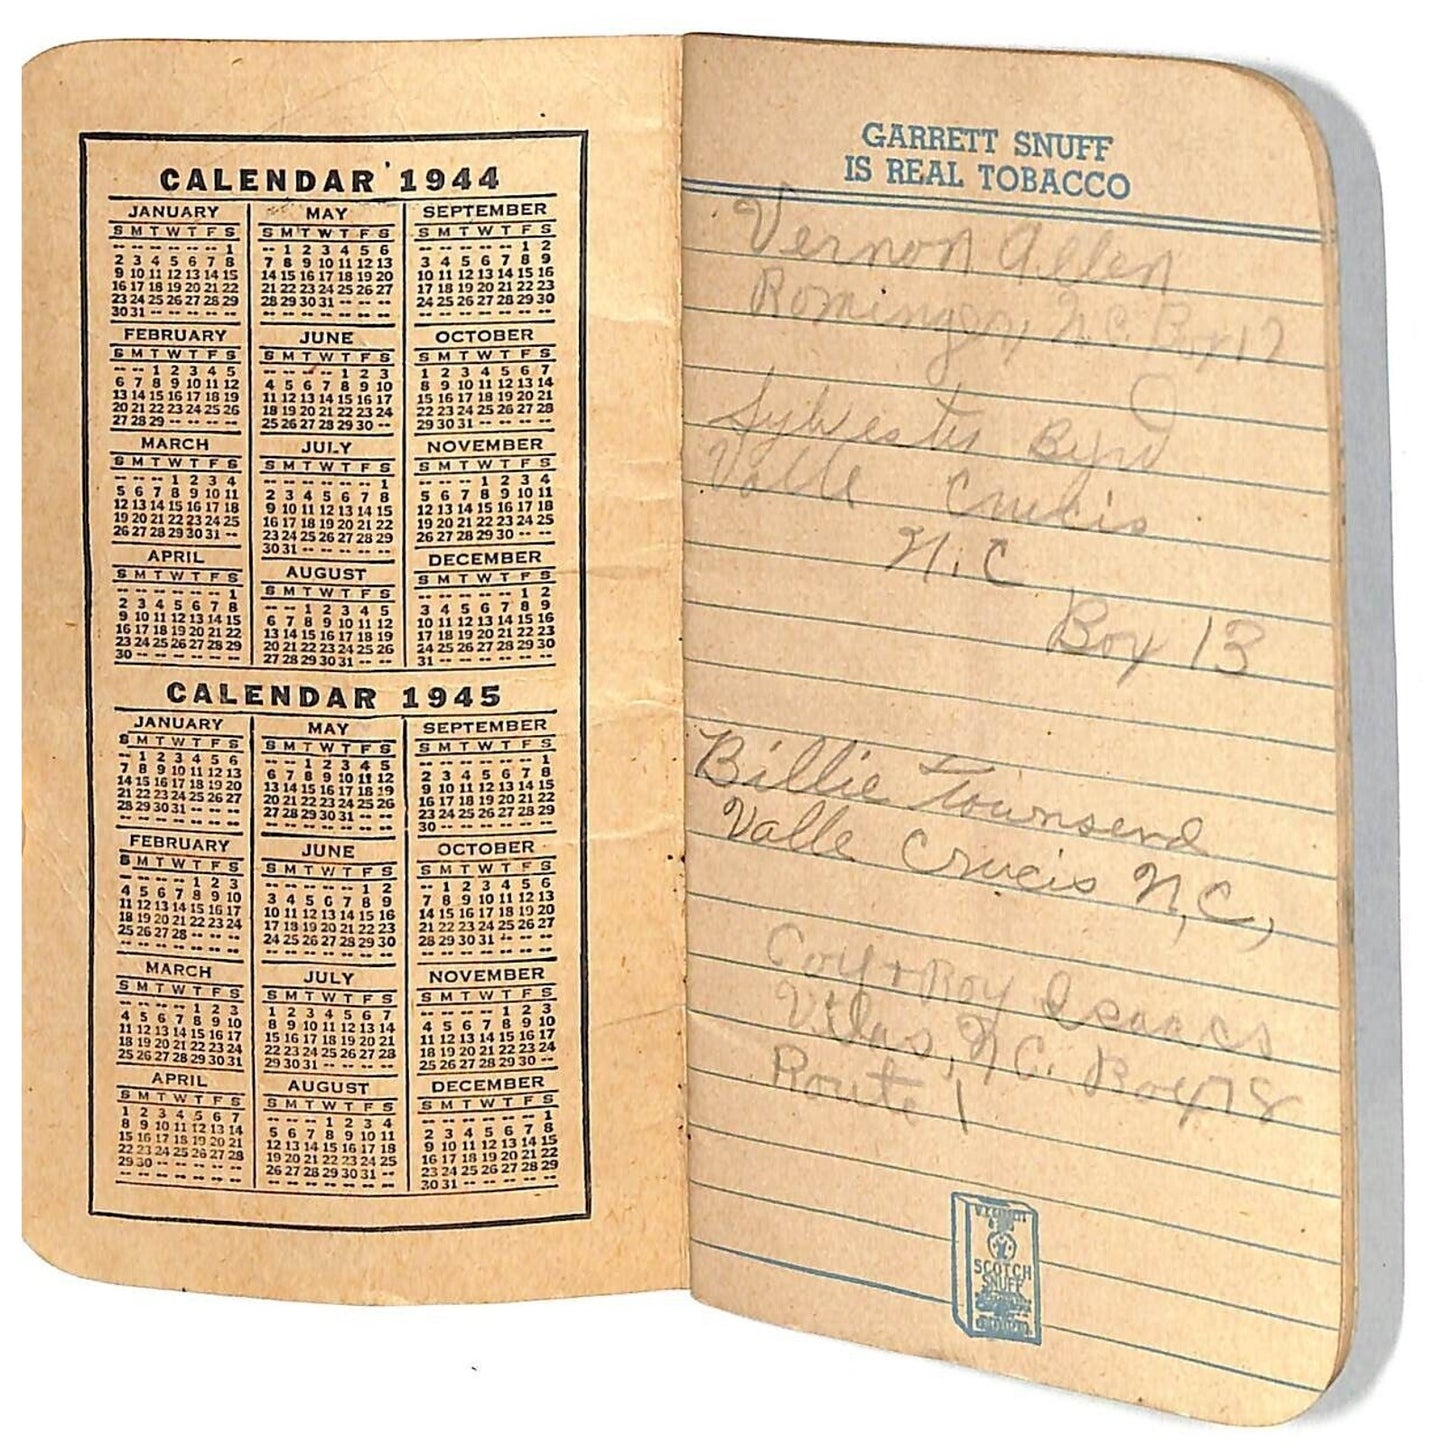 CALENDAR 1944
JANUARY
S M T W T F S
-- -- -- -- -- -- 1
2 3 4 5 6 7 8
9 10 11 12 13 14 15
16 17 18 19 20 21 22
23 24 25 26 27 28 29
30 31 -- -- -- -- --
FEBRUARY
S M T W T F S
-- -- 1 2 3 4 5
6 7 8 9 10 11 12
13 14 15 16 17 18 19
20 21 22 23 24 25 26
27 28 29 -- -- -- --
MARCH
S M T W T F S
-- -- -- 1 2 3 4
5 6 7 8 9 10 11
12 13 14 15 16 17 18
19 20 21 22 23 24 25
26 27 28 29 30 31 --
APRIL
S M T W T F S
-- -- -- -- -- -- 1
2 3 4 5 6 7 8
9 10 11 12 13 14 15
16 17 18 19 20 21 22
23 24 25 26 27 28 29
30 -- -- -- -- -- --
MAY
S M T W T F S
-- 1 2 3 4 5 6
7 8 9 10 11 12 13
14 15 16 17 18 19 20
21 22 23 24 25 26 27
28 29 30 31 -- -- --
-- -- -- -- -- -- --
JUNE
S M T W T F S
-- -- -- -- 1 2 3
4 5 6 7 8 9 10
11 12 13 14 15 16 17
18 19 20 21 22 23 24
25 26 27 28 29 30 --
JULY
S M T W T F S
-- -- -- -- -- -- 1
2 3 4 5 6 7 8
9 10 11 12 13 14 15
16 17 18 19 20 21 22
23 24 25 26 27 28 29
30 31 -- -- -- -- --
AUGUST
S M T W T F S
-- -- 1 2 3 4 5
6 7 8 9 10 11 12
13 14 15 16 17 18 19
20 21 22 23 24 25 26
27 28 29 30 31 -- --
SEPTEMBER
S M T W T F S
-- -- -- -- -- 1 2
3 4 5 6 7 8 9
10 11 12 13 14 15 16
17 18 19 20 21 22 23
24 25 26 27 28 29 30
-- -- -- -- -- -- --
OCTOBER
S M T W T F S
1 2 3 4 5 6 7
8 9 10 11 12 13 14
15 16 17 18 19 20 21
22 23 24 25 26 27 28
29 30 31 -- -- -- --
NOVEMBER
S M T W T F S
-- -- -- 1 2 3 4
5 6 7 8 9 10 11
12 13 14 15 16 17 18
19 20 21 22 23 24 25
26 27 28 29 30 -- --
DECEMBER
S M T W T F S
-- -- -- -- -- 1 2
3 4 5 6 7 8 9
10 11 12 13 14 15 16
17 18 19 20 21 22 23
24 25 26 27 28 29 30
31 -- -- -- -- -- --
CALENDAR 1945
JANUARY
S M T W T F S
-- 1 2 3 4 5 6
7 8 9 10 11 12 13
14 15 16 17 18 19 20
21 22 23 24 25 26 27
28 29 30 31 -- -- --
-- -- -- -- -- -- --
FEBRUARY
S M T W T F S
-- -- -- -- 1 2 3
4 5 6 7 8 9 10
11 12 13 14 15 16 17
18 19 20 21 22 23 24
25 26 27 28 -- -- --
-- -- -- -- -- -- --
MARCH
S M T W T F S
-- -- -- -- 1 2 3
4 5 6 7 8 9 10
11 12 13 14 15 16 17
18 19 20 21 22 23 24
25 26 27 28 29 30 31
APRIL
S M T W T F S
1 2 3 4 5 6 7
8 9 10 11 12 13 14
15 16 17 18 19 20 21
22 23 24 25 26 27 28
29 30 -- -- -- -- --
-- -- -- -- -- -- --
MAY
S M T W T F S
-- -- 1 2 3 4 5
6 7 8 9 10 11 12
13 14 15 16 17 18 19
20 21 22 23 24 25 26
27 28 29 30 31 -- --
-- -- -- -- -- -- --
JUNE
S M T W T F S
-- -- -- -- -- 1 2
3 4 5 6 7 8 9
10 11 12 13 14 15 16
17 18 19 20 21 22 23
24 25 26 27 28 29 30
JULY
S M T W T F S
1 2 3 4 5 6 7
8 9 10 11 12 13 14
15 16 17 18 19 20 21
22 23 24 25 26 27 28
29 30 31 -- -- -- --
AUGUST
S M T W T F S
-- -- -- 1 2 3 4
5 6 7 8 9 10 11
12 13 14 15 16 17 18
19 20 21 22 23 24 25
26 27 28 29 30 31 --
-- -- -- -- -- -- --
SEPTEMBER
S M T W T F S
-- -- -- -- -- -- 1
2 3 4 5 6 7 8
9 10 11 12 13 14 15
16 17 18 19 20 21 22
23 24 25 26 27 28 29
30 -- -- -- -- -- --
OCTOBER
S M T W T F S
-- 1 2 3 4 5 6
7 8 9 10 11 12 13
14 15 16 17 18 19 20
21 22 23 24 25 26 27
28 29 30 31 -- -- --
-- -- -- -- -- -- --
NOVEMBER
S M T W T F S
-- -- -- -- 1 2 3
4 5 6 7 8 9 10
11 12 13 14 15 16 17
18 19 20 21 22 23 24
25 26 27 28 29 30 --
DECEMBER
S M T W T F S
-- -- -- -- -- -- 1
2 3 4 5 6 7 8
9 10 11 12 13 14 15
16 17 18 19 20 21 22
23 24 25 26 27 28 29
30 31 -- -- -- -- --
GARRETT SNUFF
IS REAL TOBACCO
Vernon Allen
Rominger, N.C. Box 12
Sylvester Byrd
Valle Crucis
N.C
Box 13
Billie Townsend
Valle Crucis N,C,
Coy + Roy Isaacs
Vilas, N.C. Box 78
Route 1
SCOTCH
SNUFF